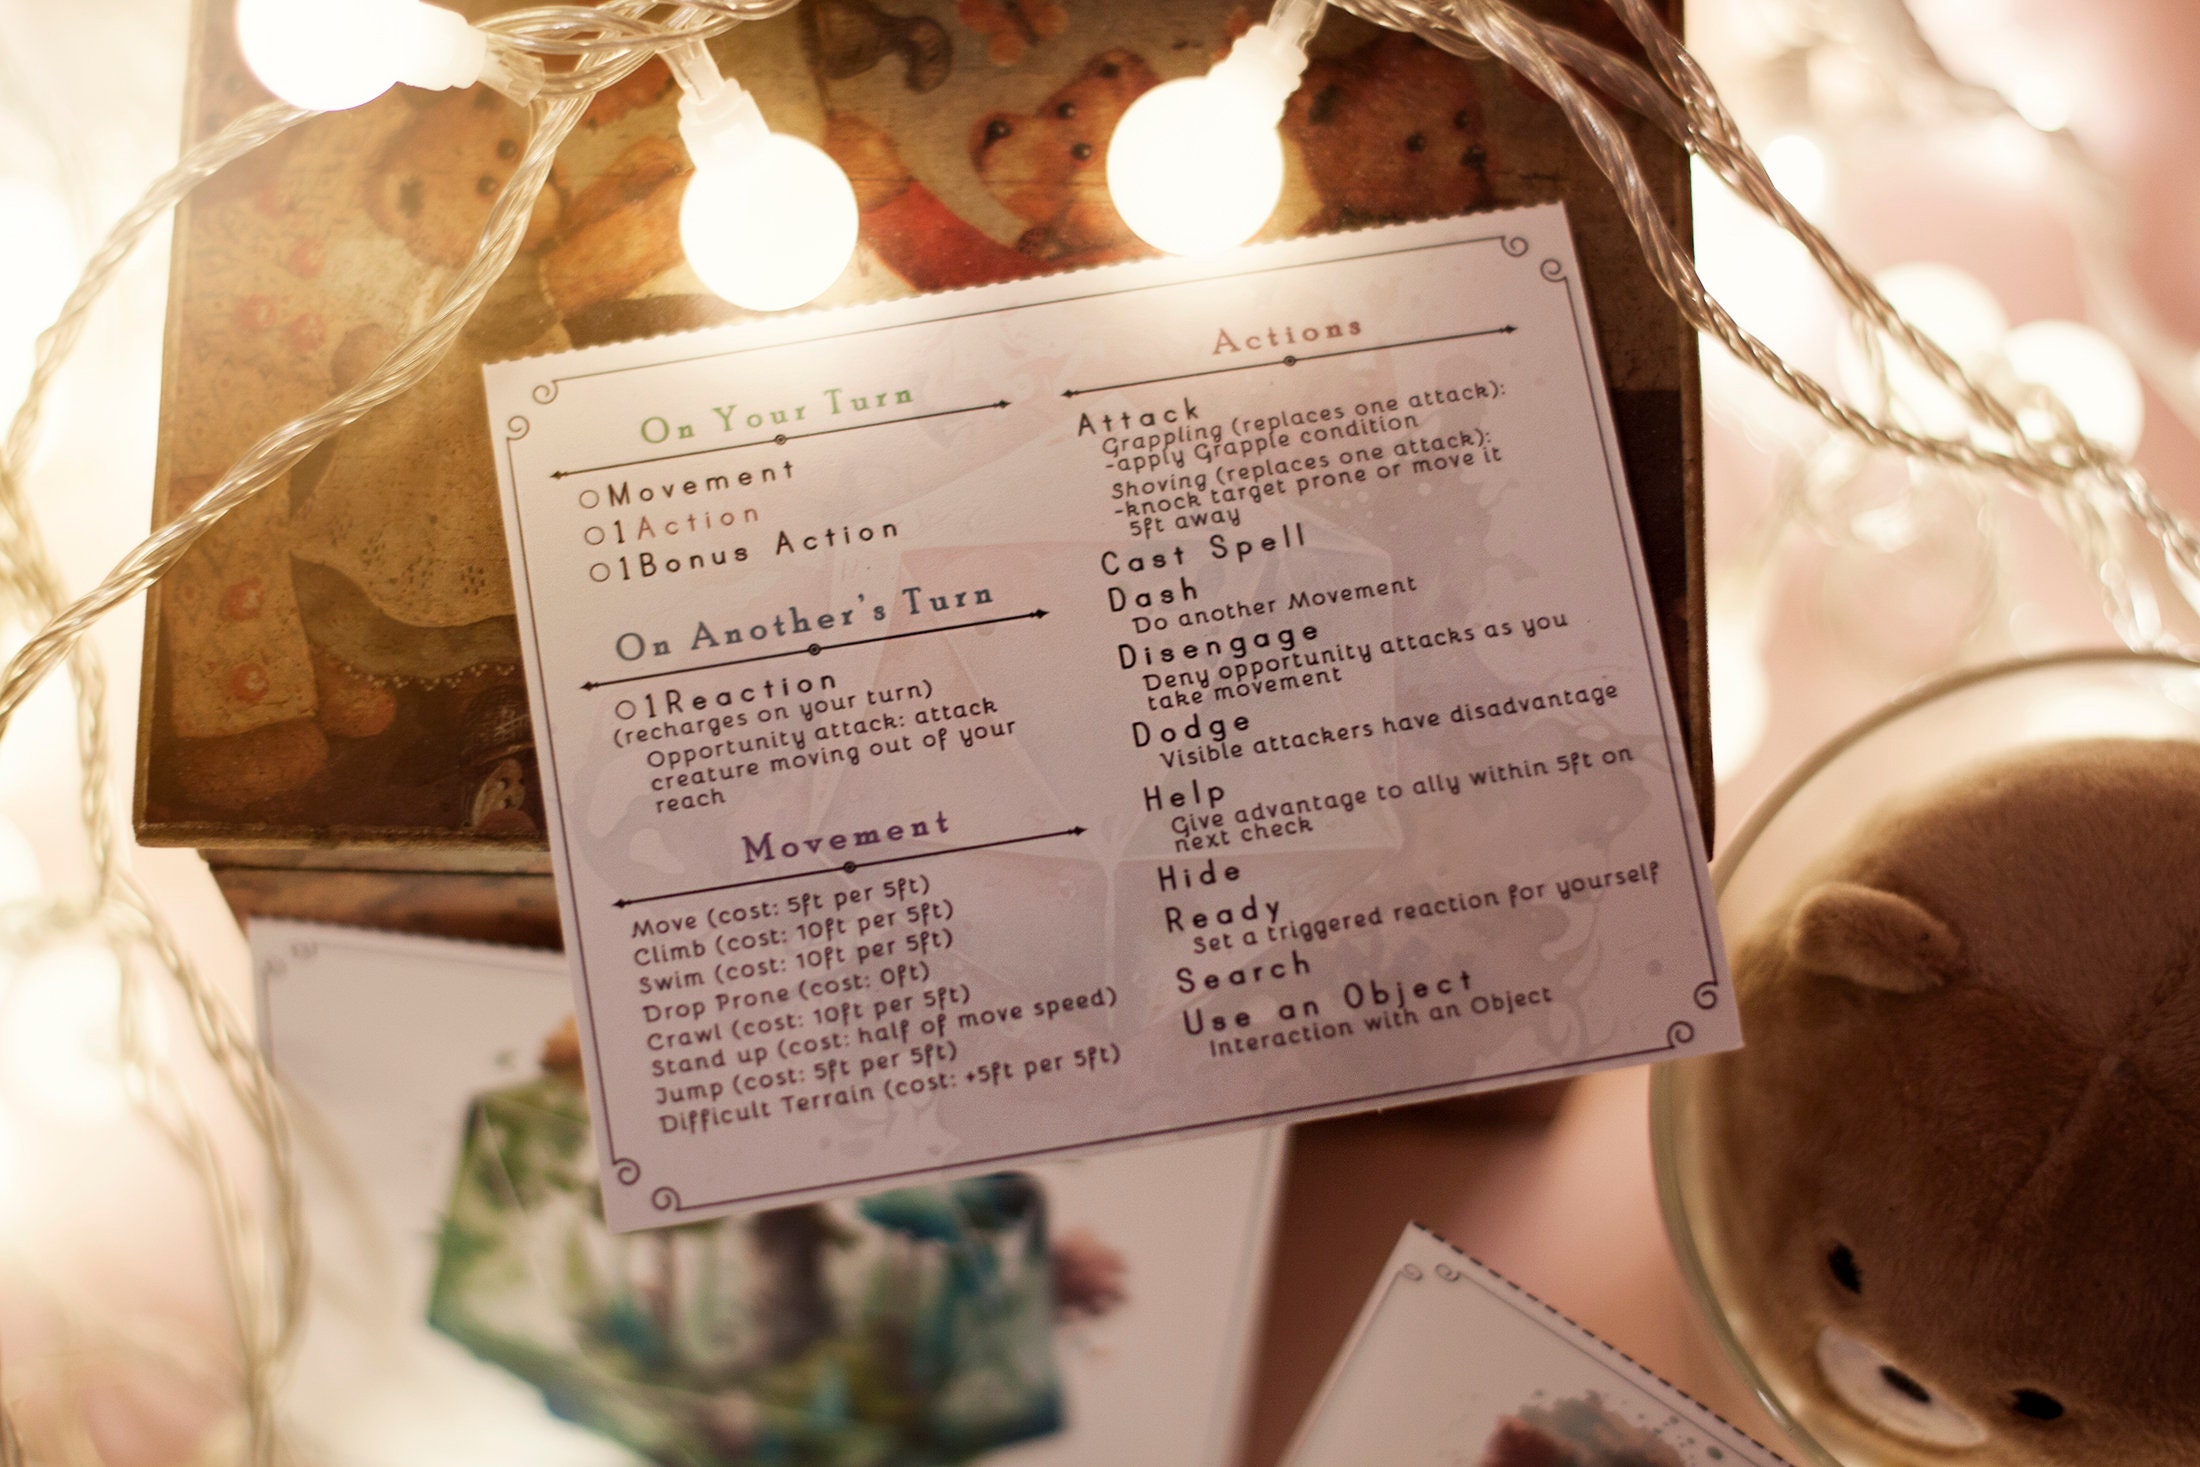 On Your Turn
○Movement
○1Action
○1Bonus Action
On Another's Turn
○1Reaction
(recharges on your turn)
Opportunity attack: attack
creature moving out of your
reach
Movement
Move (cost: 5ft per 5ft)
Climb (cost: 10ft per 5ft)
Swim (cost: 10ft per 5ft)
Drop Prone (cost: 0ft)
Crawl (cost: 10ft per 5ft)
Stand up (cost: half of move speed)
Jump (cost: 5ft per 5ft)
Difficult Terrain (cost: +5ft per 5ft)
Actions
Attack
Grappling (replaces one attack):
-apply Grapple condition
Shoving (replaces one attack):
-knock target prone or move it
5ft away
Cast Spell
Dash
Do another Movement
Disengage
Deny opportunity attacks as you
take movement
Dodge
Visible attackers have disadvantage
Help
Give advantage to ally within 5ft on
next check
Hide
Ready
Set a triggered reaction for yourself
Search
Use an Object
Interaction with an Object